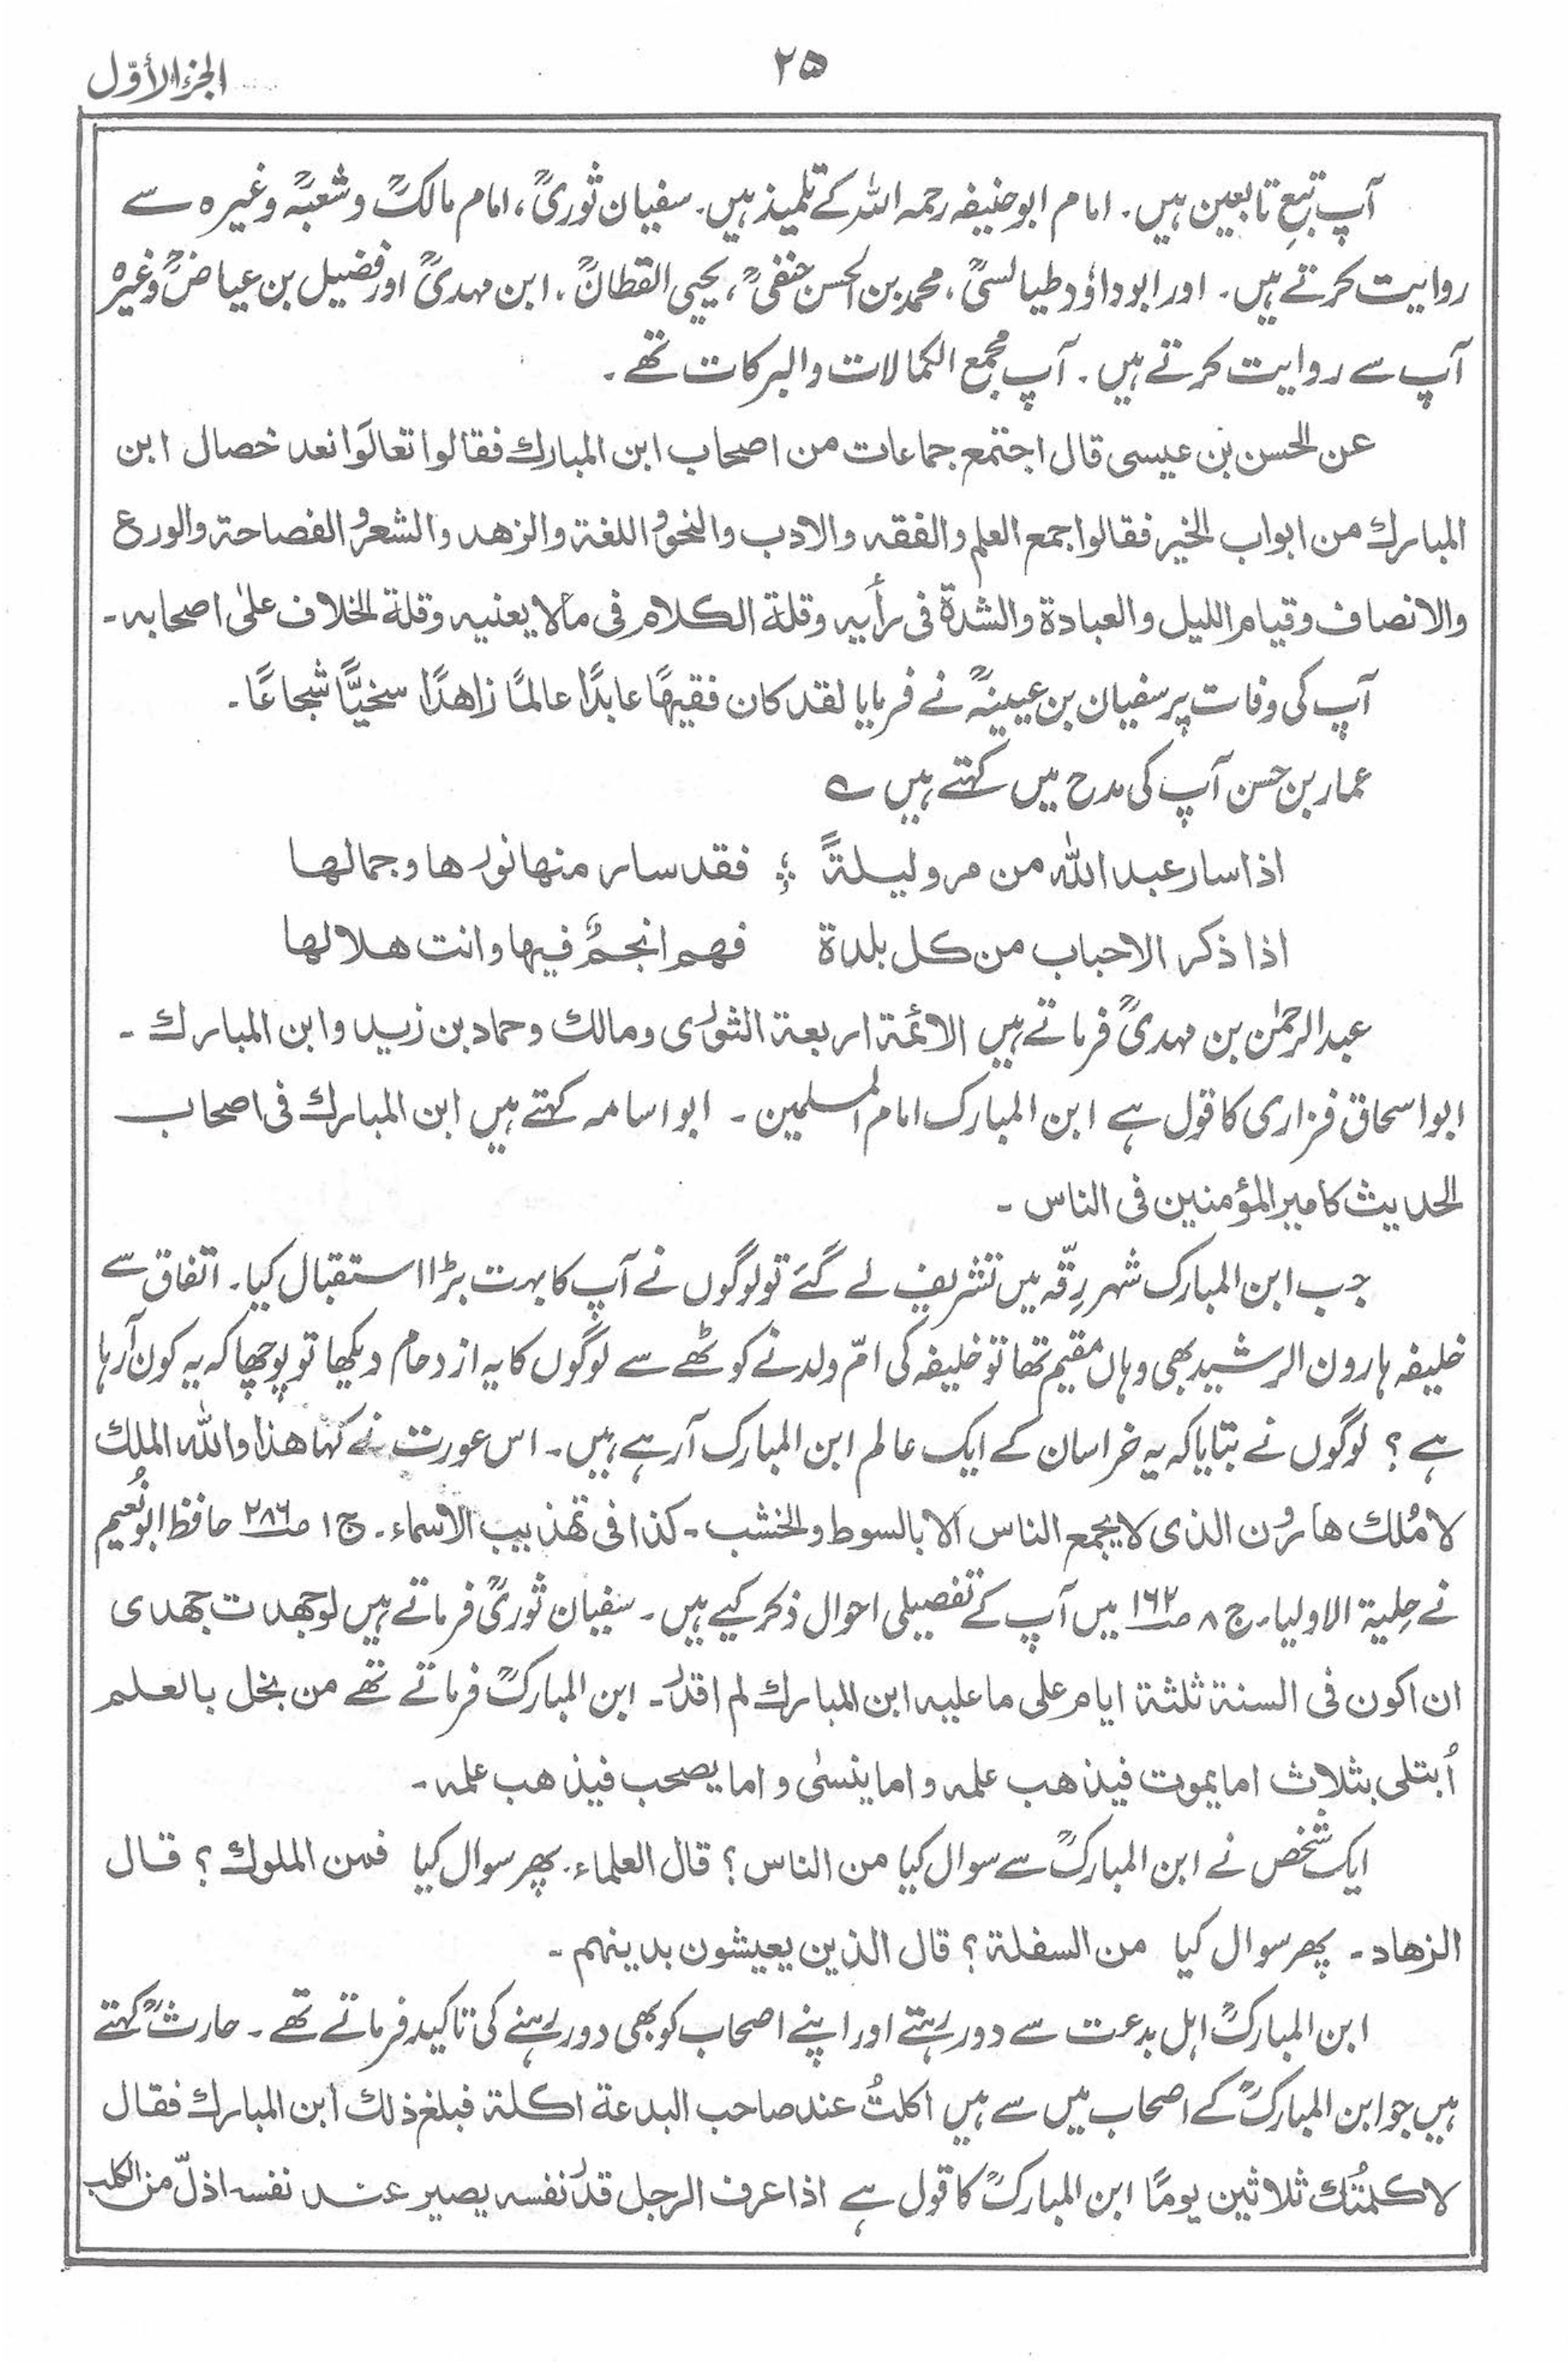 ٢٥
الجزء الأوّل
آپ تبعِ تابعین ہیں۔ امام ابو حنیفہ رحمہ اللہ کے تلمیذ ہیں۔ سفیان ثوریؒ، امام مالکؒ و شعبہؒ وغیرہ سے
روایت کرتے ہیں۔ اور ابو داؤد طیالسیؒ، محمد بن الحسن حنفیؒ، یحیی القطانؒ، ابن مہدیؒ اور فضیل بن عیاضؒ وغیرہ
آپ سے روایت کرتے ہیں۔ آپ مجمع الکمالات والبرکات تھے۔
عن الحسن بن عیسی قال اجتمع جماعات من اصحاب ابن المبارك فقالوا تعالَوا نعد خصال ابن
المبارك من ابواب الخیر فقالوا جمع العلم والفقه والادب والنحو واللغة والزهد والشعر والفصاحة والورع
والانصاف وقیام اللیل والعبادة والشدة فی رأیه وقلة الکلام فی مالا یعنیه وقلة الخلاف علیٰ اصحابه۔
آپ کی وفات پر سفیان بن عیینہؒ نے فرمایا لقد کان فقیهًا عابدًا عالمًا زاهدًا سخیًّا شجاعًا۔
عمار بن حسن آپ کی مدح میں کہتے ہیں ؎
اذا سار عبد الله من مرو لیلةً ؛ فقد سار منها نورها وجمالها
اذا ذکر الاحباب من کل بلدة فهم انجمٌ فیها وانت هلالها
عبد الرحمٰن بن مہدیؒ فرماتے ہیں الائمة اربعة الثوری ومالك وحماد بن زید وابن المبارك۔
ابو اسحاق فزاری کا قول ہے ابن المبارک امام المسلمین۔ ابو اسامہ کہتے ہیں ابن المبارك فی اصحاب
الحدیث کامیر المؤمنین فی الناس۔
جب ابن المبارک شہر رِقّہ میں تشریف لے گئے تو لوگوں نے آپ کا بہت بڑا استقبال کیا۔ اتفاق سے
خلیفہ ہارون الرشید بھی وہاں مقیم تھا تو خلیفہ کی امّ ولد نے کوٹھے سے لوگوں کا یہ ازدحام دیکھا تو پوچھا کہ یہ کون آرہا
ہے؟ لوگوں نے بتایا کہ یہ خراسان کے ایک عالم ابن المبارک آرہے ہیں۔ اس عورت نے کہا هذا والله الملك
لا مُلك هارون الذی لا یجمع الناس الا بالسوط والخشب۔ کذا فی تهذیب الاسماء۔ ج ۱ ص ۲۸۶ حافظ ابو نُعیم
نے حِلیۃ الاولیاء۔ ج ۸ ص ۱۶۲ میں آپ کے تفصیلی احوال ذکر کیے ہیں۔ سفیان ثوریؒ فرماتے ہیں لو جهدت جهدی
ان اکون فی السنة ثلثة ایام علی ما علیه ابن المبارك لم اقدر۔ ابن المبارکؒ فرماتے تھے من بخل بالعلم
اُبتلی بثلاث اما یموت فیذهب علمه واما ینسیٰ واما یصحب فیذهب علمه۔
ایک شخص نے ابن المبارکؒ سے سوال کیا من الناس؟ قال العلماء۔ پھر سوال کیا فمن الملوك؟ قال
الزهاد۔ پھر سوال کیا من السفلة؟ قال الذین یعیشون بدینهم۔
ابن المبارکؒ اہل بدعت سے دور رہتے اور اپنے اصحاب کو بھی دور رہنے کی تاکید فرماتے تھے۔ حارثؒ کہتے
ہیں جو ابن المبارکؒ کے اصحاب میں سے ہیں اکلتُ عند صاحب البدعة اکلة فبلغ ذلك ابن المبارك فقال
لا کلمتُك ثلاثین یومًا ابن المبارکؒ کا قول ہے اذا عرف الرجل قدر نفسه یصیر عند نفسه اذلّ من الکلب